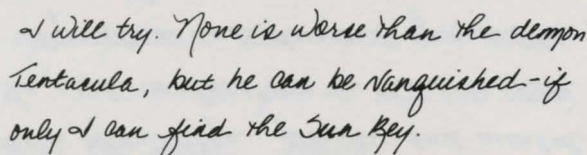 I will try. None is worse than the demon
Tentacula, but he can be vanquished-if
only I can find the Sun Key.